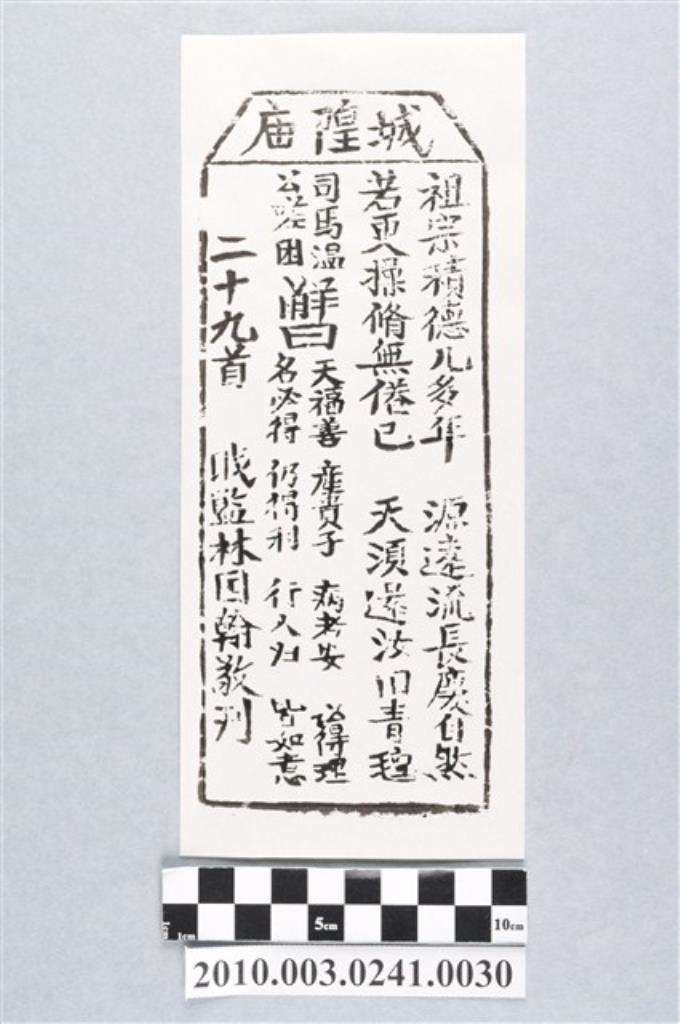 城隍庙
祖宗積德几多年 源遠流長慶自然
若更操脩無倦已 天須還汝旧青氊
司馬温 天福善 産貴子 病者安 訟得理
公嗟困 名必得 仍獲利 行人归 皆如意
解曰
二十九首 林国翰敬刋
1cm 5cm 10cm
2010.003.0241.0030